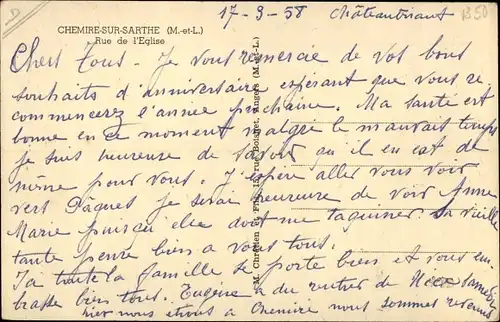 17-3-58 Châteaubriant
B50
CHEMIRE-SUR-SARTHE (M.-et-L.)
Rue de l'Eglise
Chers Tous - Je vous remercie de vos bons
souhaits d'anniversaire espérant que vous re
commencerez l'année prochaine. Ma santé est
bonne en ce moment malgré le mauvais temps
je suis heureuse de savoir qu'il en est de
même pour vous. J'espère aller vous voir
vers Pâques je serai heureuse de voir Anne
Marie puisqu'elle doit me taquiner sa vieille
tante pense bien a vous tous.
Ici toute la famille se porte bien et vous em
brasse bien tous. Eugène a du rentrer de samedi
hier nous étions a Chemiré nous sommes revenus
M. Chrétien et Fils, rue Boisnet, Angers (M.-et-L.)